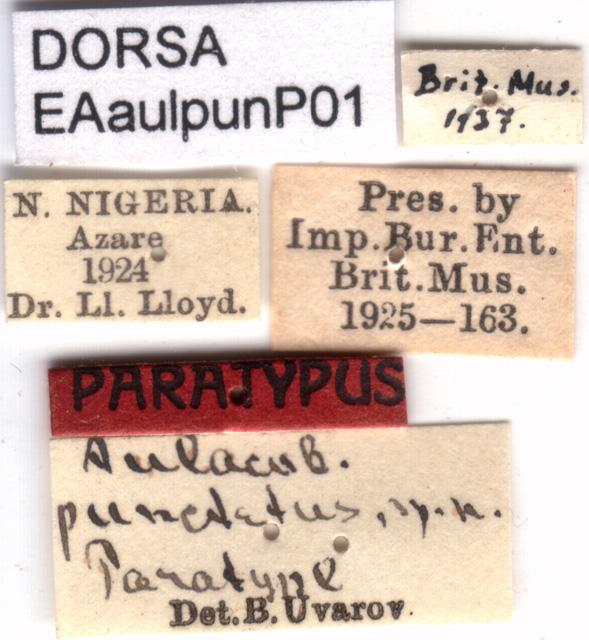 DORSA
EAaulpunP01
Brit. Mus.
1937.
N. NIGERIA.
Azare
1924
Dr. Ll. Lloyd.
Pres. by
Imp.Bur.Ent.
Brit.Mus.
1925—163.
PARATYPUS
Aulacob.
punctatus, sp.n.
Paratype
Det.B.Uvarov.